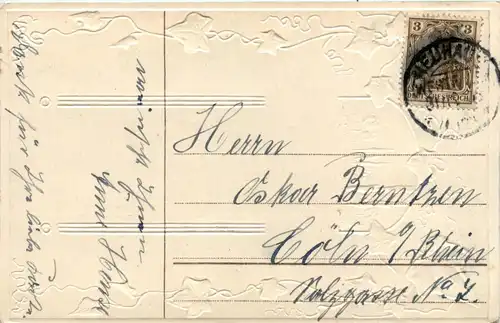 Herrn
Oskar Berntzen
Cöln a/Rhein
Salzgasse No. 7.
wünscht Ihnen
Ernst
Dank für Ihre liebe Karte.
3 3